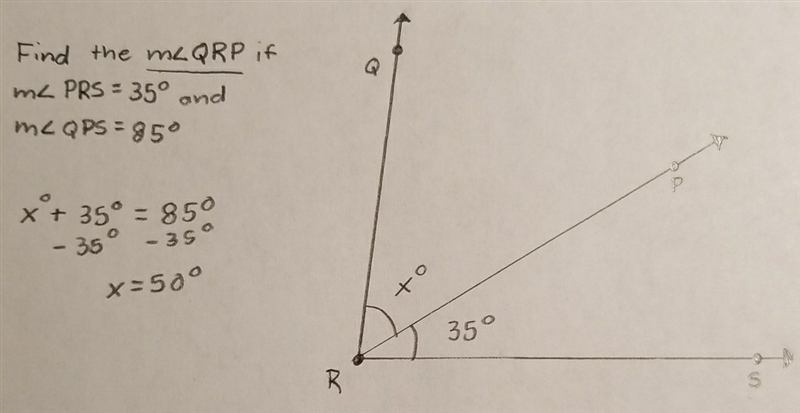 Find the m∠QRP if
m∠ PRS = 35° and
m∠ QPS = 85°
x° + 35° = 85°
- 35° - 35°
x = 50°
Q
P
x°
35°
R
S